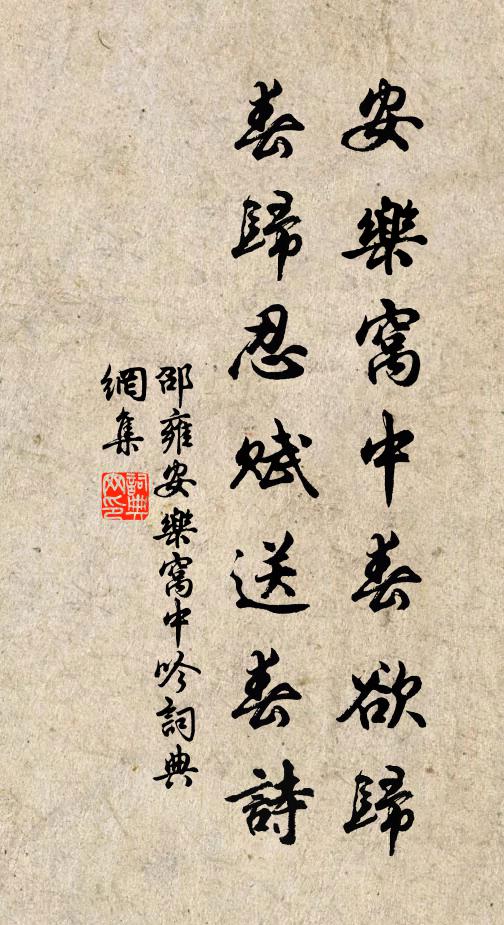 安樂窩中春欲歸
春歸忍賦送春詩
邵雍安樂窩中吟詞典
網集
詞典
網印